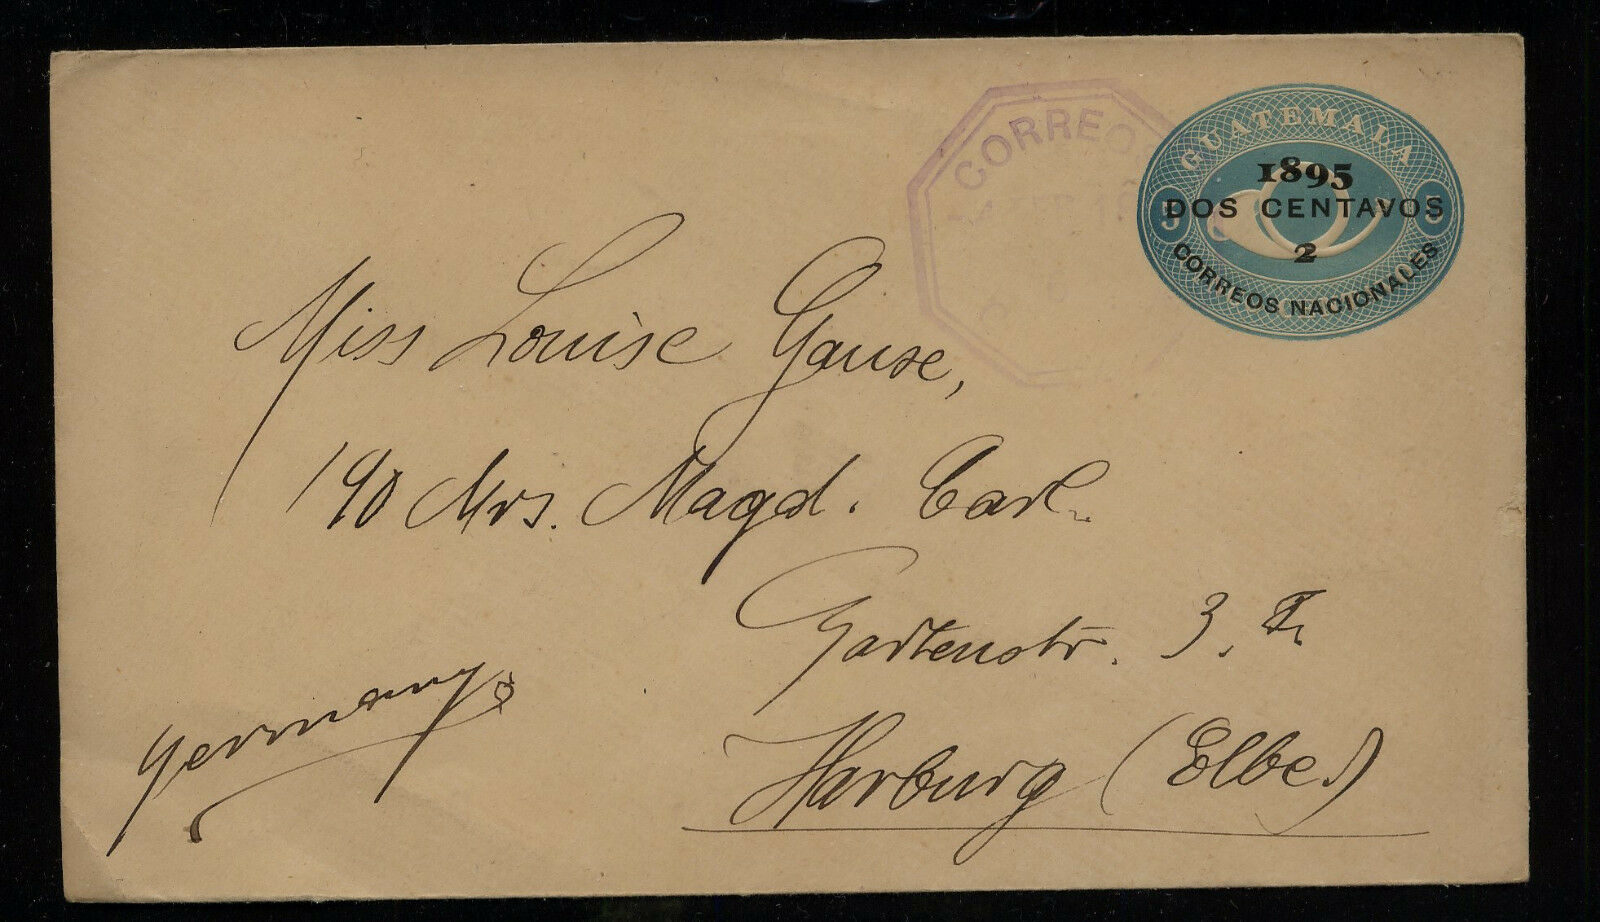 CORREOS
GUATEMALA
1895
5 DOS CENTAVOS 5
2
CORREOS NACIONALES
Miss Louise Gause,
190 Mrs. Magd. Carl
Gartenstr. 3. I
Harburg (Elbe.)
Germany